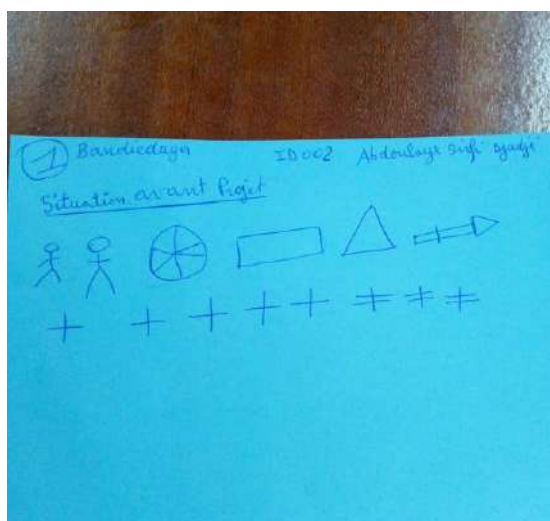 1 Bandiedaga ID 002 Abdoulaye Sidi Djadjé
Situation avant Projet